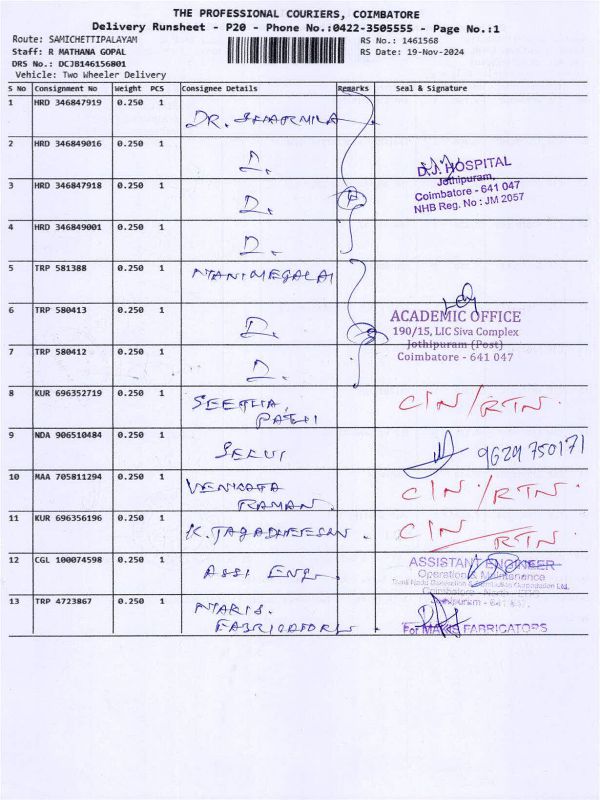 THE PROFESSIONAL COURIERS, COIMBATORE
Delivery Runsheet - P20 - Phone No.:0422-3505555 - Page No.:1
Route: SAMICHETTIPALAYAM
RS No.: 1461568
Staff: R MATHANA GOPAL
RS Date: 19-Nov-2024
DRS No.: DCJB146156801
Vehicle: Two Wheeler Delivery
S No Consignment No Weight PCS Consignee Details Remarks Seal & Signature
1 HRD 346847919 0.250 1 DR. SHARMILA
2 HRD 346849016 0.250 1 D.
D.J. HOSPITAL
Jothipuram,
Coimbatore - 641 047
NHB Reg. No : JM 2057
3 HRD 346847918 0.250 1 D.
4 HRD 346849001 0.250 1 D.
5 TRP 581388 0.250 1 MANIMEGALAI
6 TRP 580413 0.250 1 D.
ACADEMIC OFFICE
190/15, LIC Siva Complex
Jothipuram (Post)
Coimbatore - 641 047
7 TRP 580412 0.250 1 D.
8 KUR 696352719 0.250 1 SEETHA PATHI CIN/RTN.
9 NDA 906510484 0.250 1 SELVI 9629750171
10 MAA 705811294 0.250 1 VENKATA RAMAN CIN/RTN.
11 KUR 696356196 0.250 1 K. JAGADHEESAN. CIN/RTN.
12 CGL 100074598 0.250 1 ASSI ENG
ASSISTANT ENGINEER
Operation & Maintenance
Tamil Nadu Generation & Distribution Corporation Ltd.
Coimbatore - North
Jothipuram - 641 047.
13 TRP 4723867 0.250 1 MARIS. FABRICATORS
For MARIS FABRICATORS